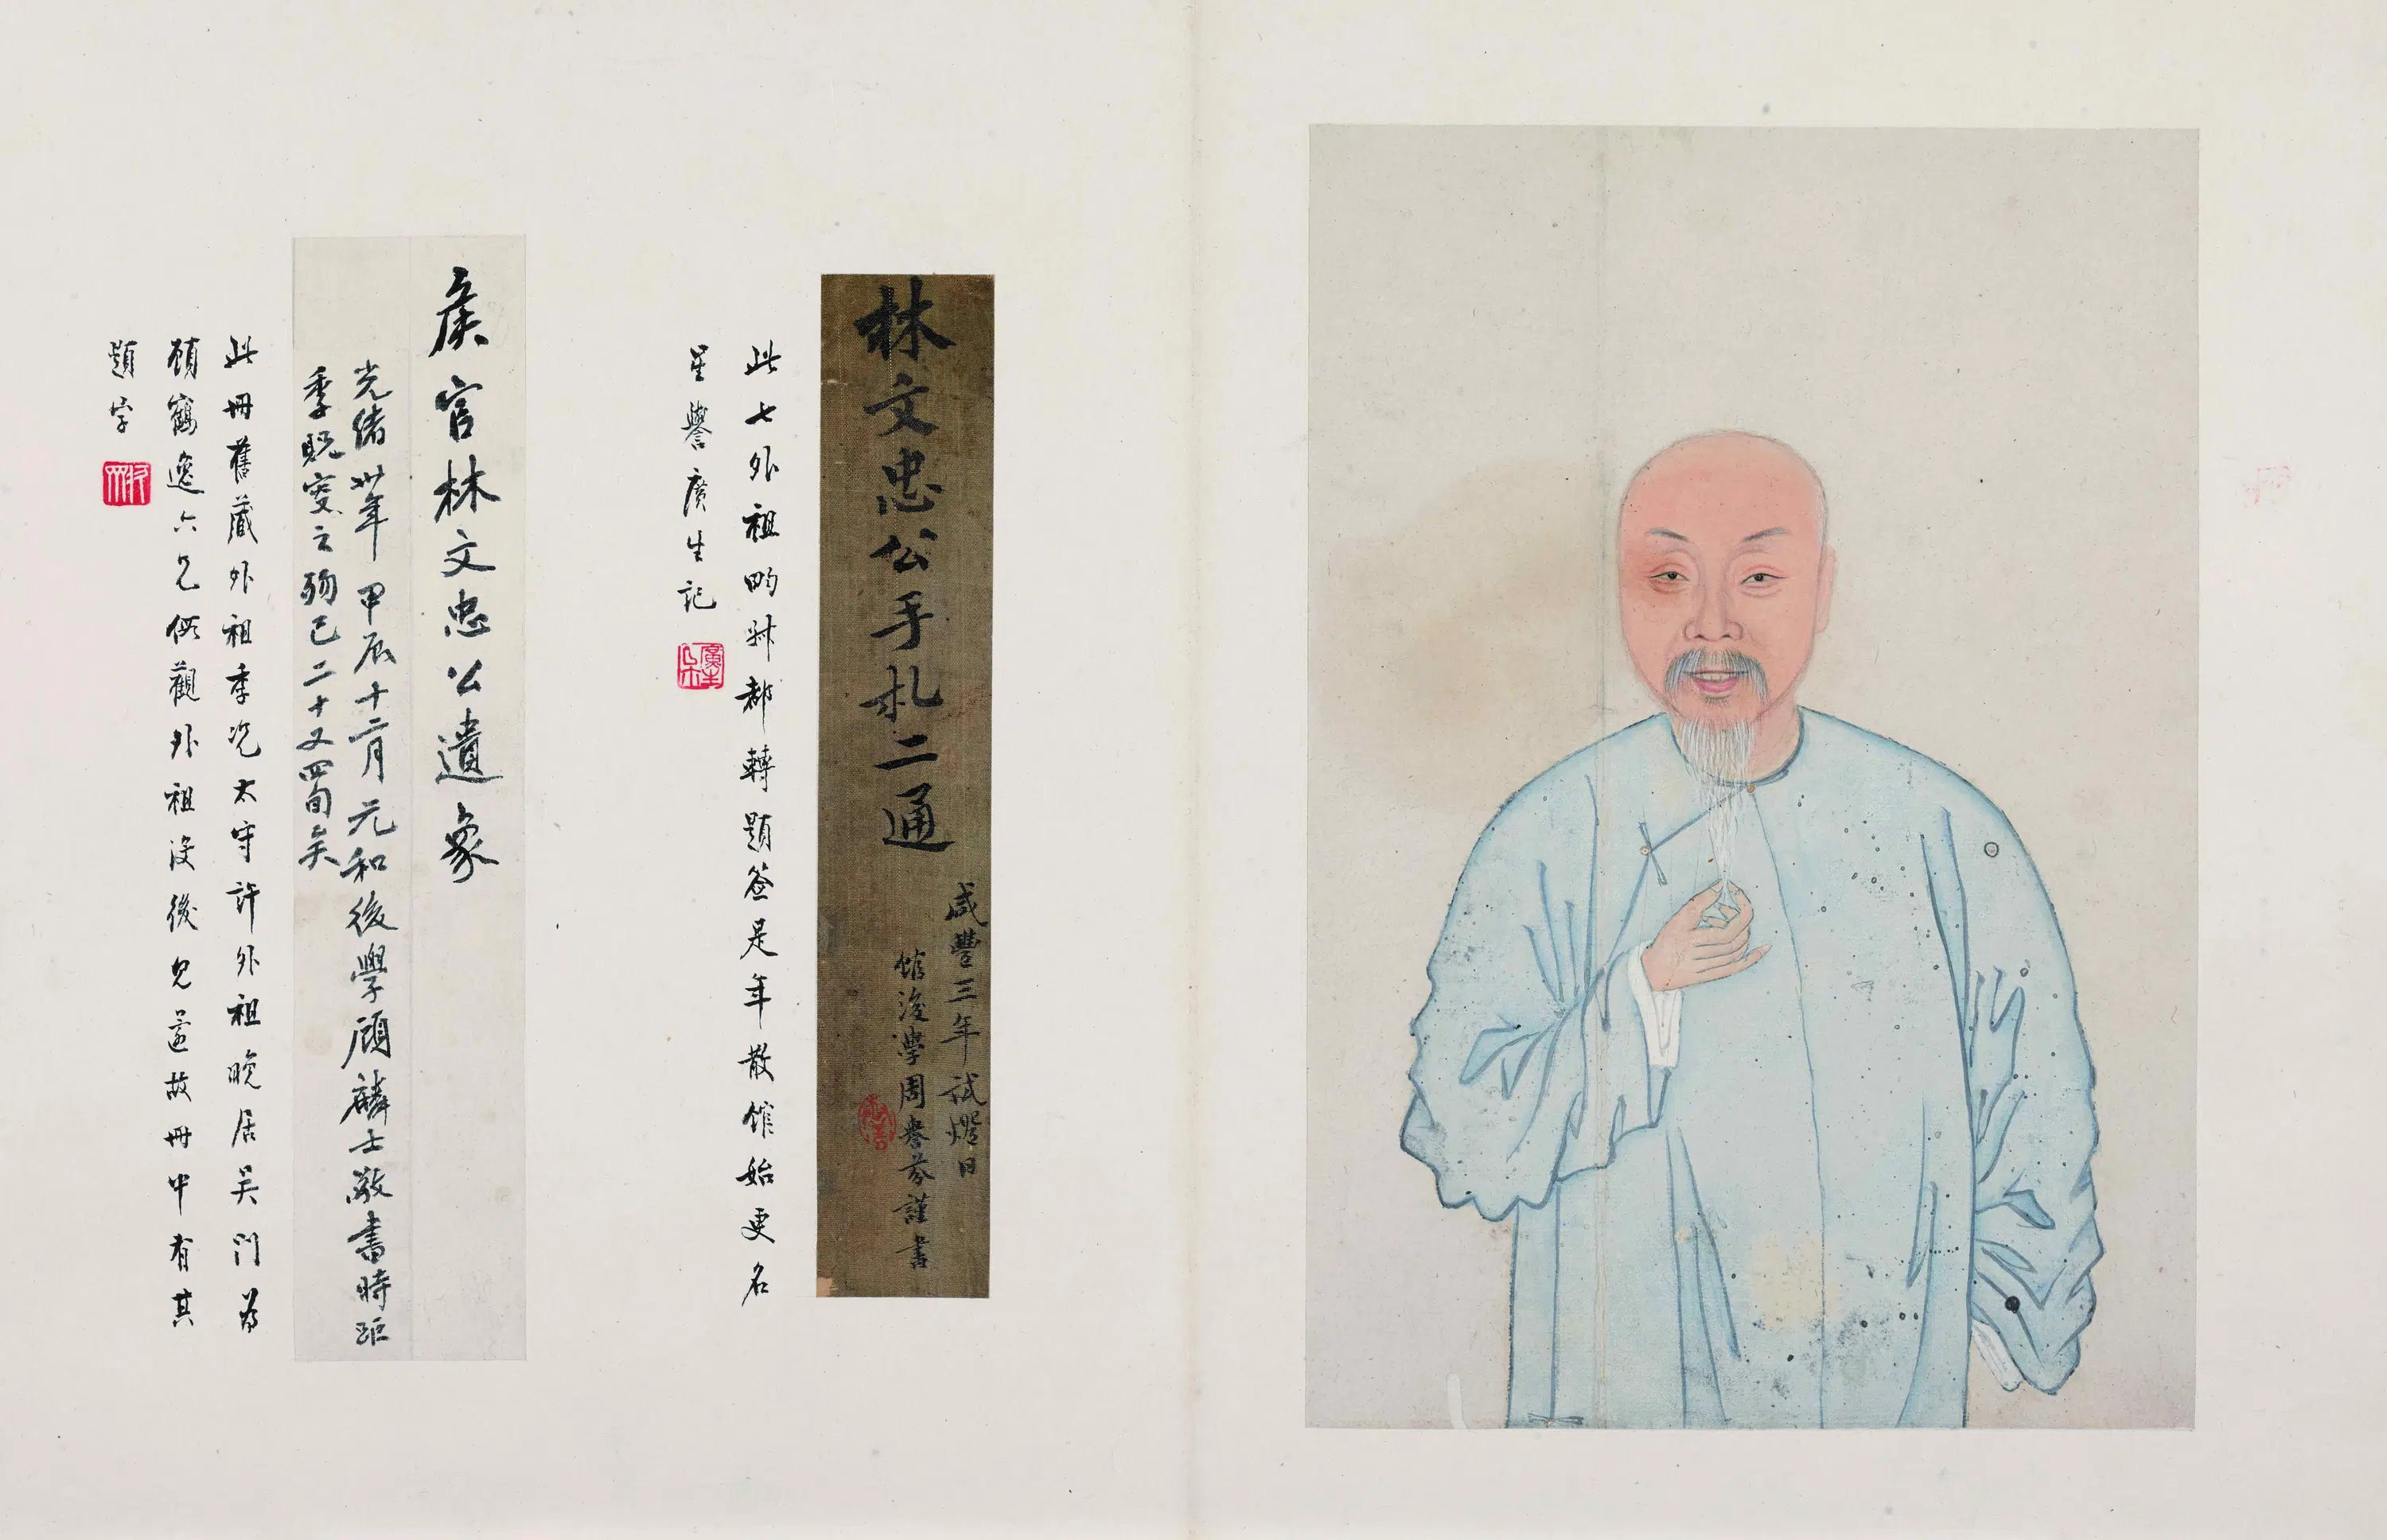 林文忠公手札二通
咸豐三年試燈日
館後學周譽芬謹書
此七外祖畇叔都轉題簽是年散館始更名
星譽廣生記
侯官林文忠公遺象
光緒卅年甲辰十二月元和後學顧麟士敬書時距
季貺叟之歾已二十又四旬矣
此冊舊藏外祖季况太守許外祖晚居吳門為
顧鶴逸六兄假觀外祖沒後見還故冊中有其
題字